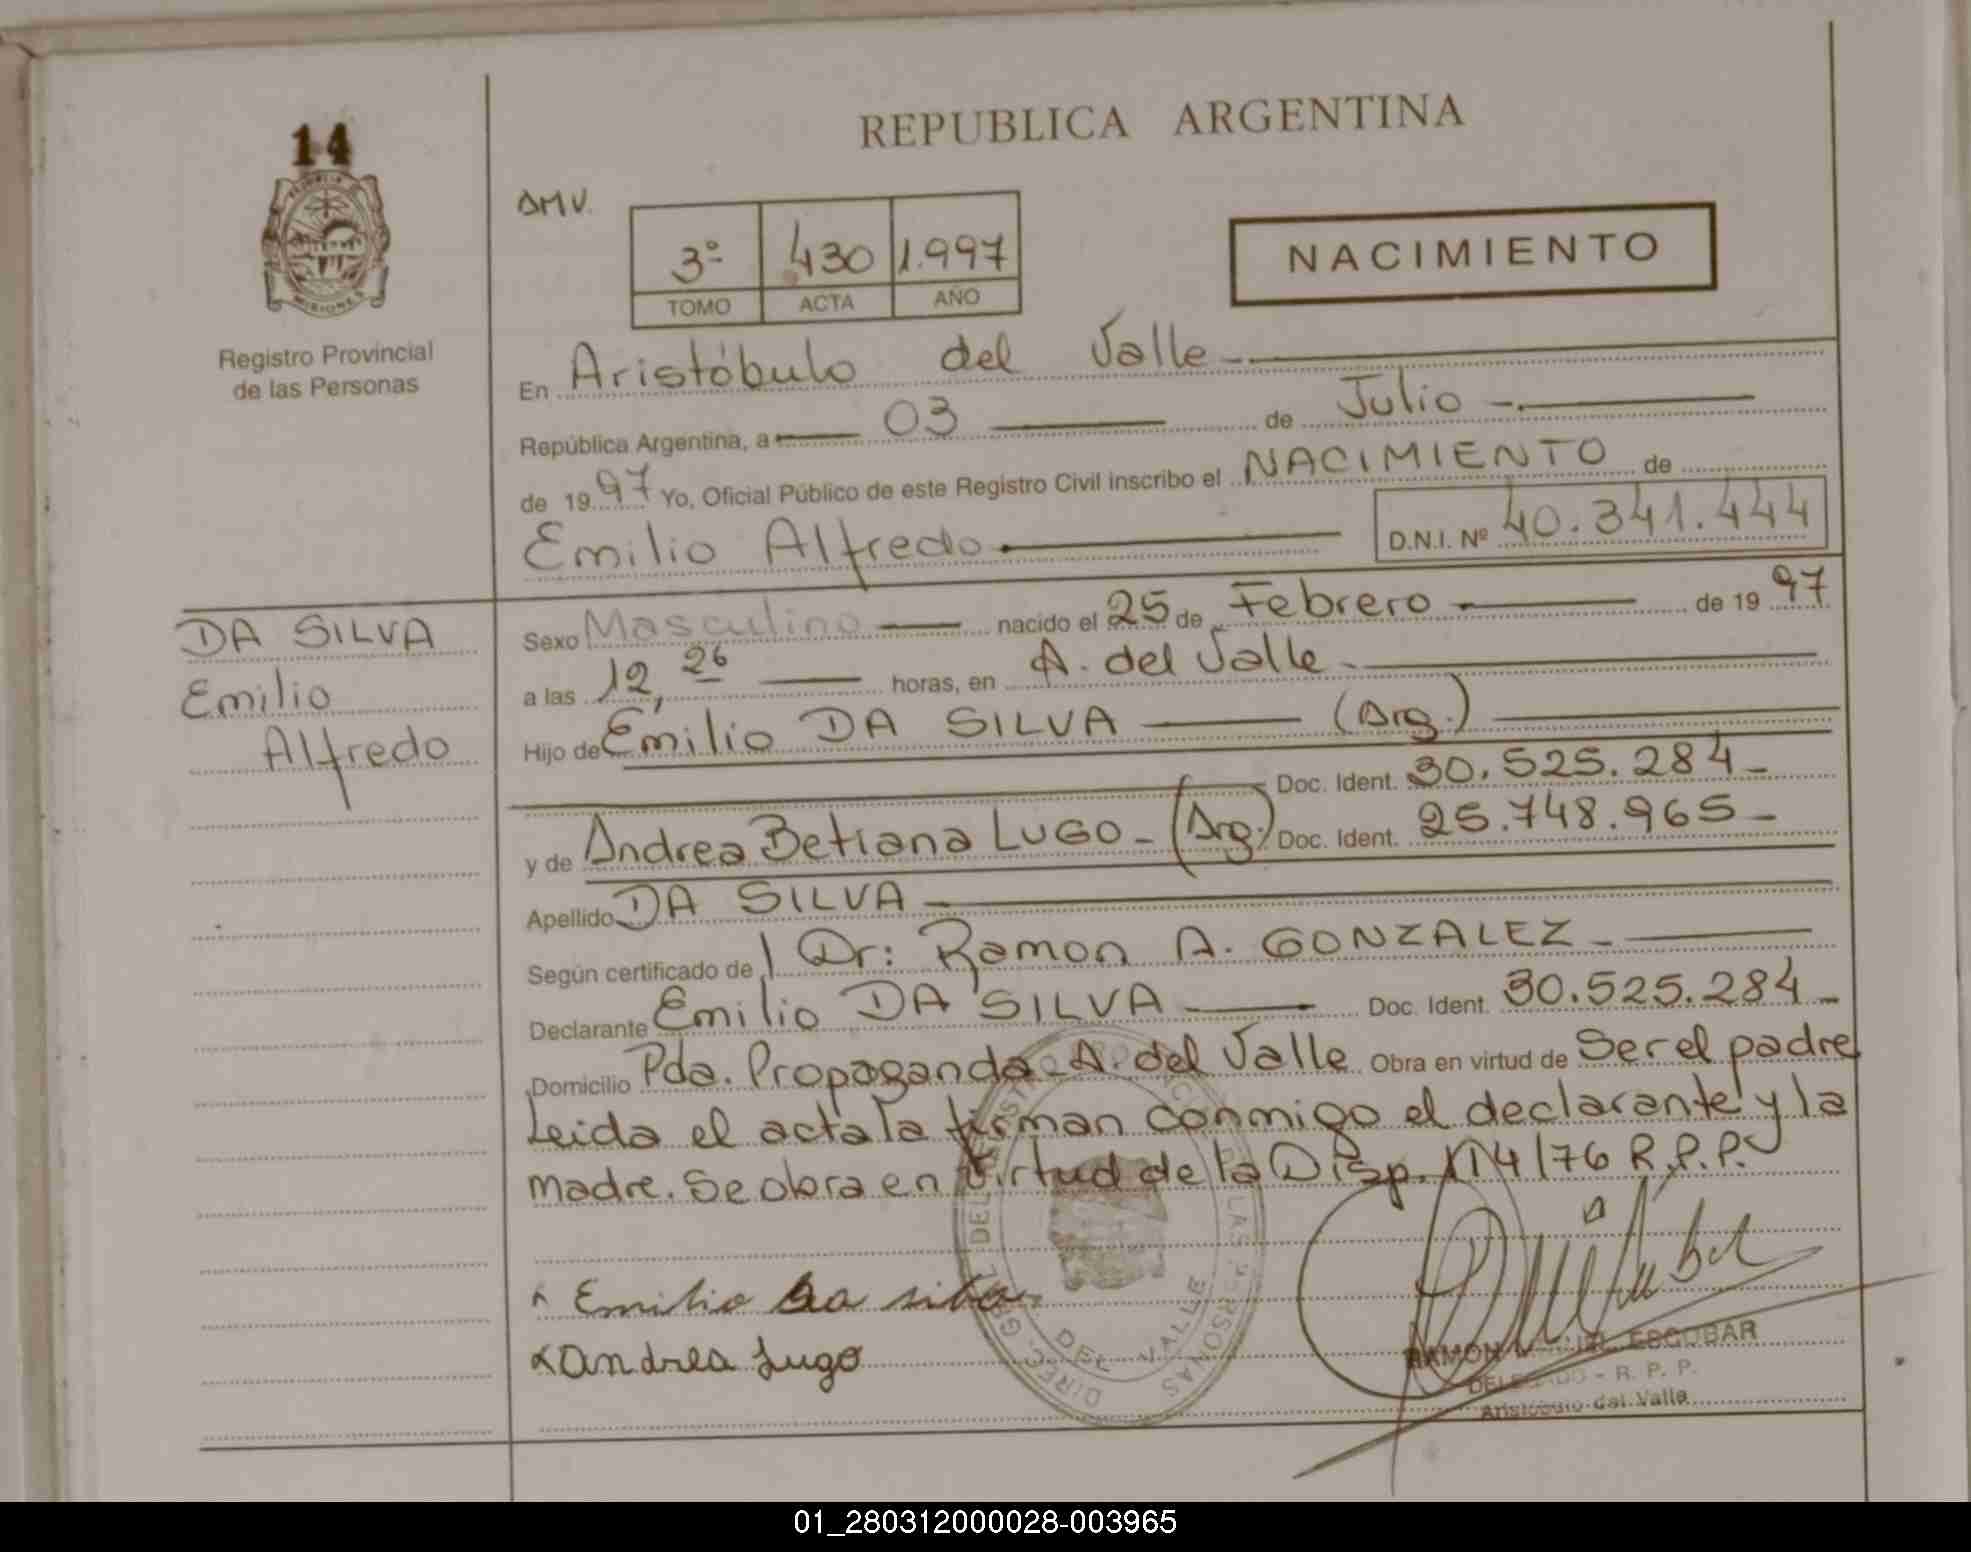 14
PROVINCIA DE
MISIONES
Registro Provincial
de las Personas
REPUBLICA ARGENTINA
DMV.
3º 430 1.997
TOMO ACTA AÑO
NACIMIENTO
En Aristóbulo del Valle
República Argentina, a 03 de Julio
de 1997 Yo, Oficial Público de este Registro Civil inscribo el NACIMIENTO de
Emilio Alfredo D.N.I. Nº 40.341.444
DA SILVA
Emilio
Alfredo
Sexo Masculino nacido el 25 de Febrero de 1997
a las 12,26 horas, en A. del Valle
Hijo de Emilio DA SILVA (Arg.)
Doc. Ident. 30.525.284
y de Andrea Betiana LUGO (Arg.) Doc. Ident. 25.748.965
Apellido DA SILVA
Según certificado de Dr: Ramon A. GONZALEZ
Declarante Emilio DA SILVA Doc. Ident. 30.525.284
Domicilio Pda. Propaganda - A. del Valle Obra en virtud de Ser el padre
Leida el acta la firman conmigo el declarante y la
madre. Se obra en virtud de la Disp. 114/76 R.P.P.
Emilio Da silva
Andrea Lugo
DEL VALLE
RAMON MANUEL ESCOBAR
DELEGADO - R. P. P.
Aristóbulo del Valle
01_280312000028-003965